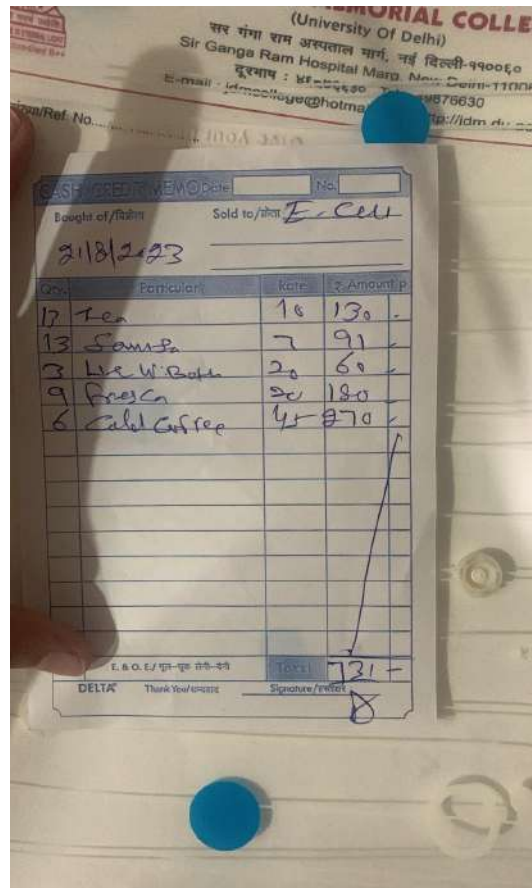 MEMORIAL COLLE
(University Of Delhi)
सर गंगा राम अस्पताल मार्ग, नई दिल्ली-११००६०
Sir Ganga Ram Hospital Marg, New Delhi-11006
दूरभाष :
E-mail : jdmcollege@hotma
No.
CASH / CREDIT MEMO Date No.
Bought of/विक्रेता Sold to/क्रेता E-Cell
21/8/2023
Qty. Particulars Rate ₹. Amount p
13 Tea 10 130 -
13 Samosa 7 91
3 W. Bottle 20 60
9 Fresca 20 180
6 Cold Coffee 45 270
E. & O. E./भूल-चूक लेनी-देनी Total 731 -
DELTA Thank You/धन्यवाद Signature/हस्ताक्षर